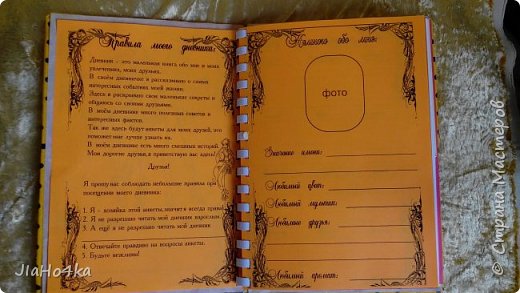 Правила моего дневника:
Дневник - это маленькая книга обо мне и моих
увлечениях, моих друзьях.
В своём дневничке я рассказываю о самых
интересных событиях моей жизни.
Здесь я раскрываю свои маленькие секреты и
общаюсь со своими друзьями.
В моём дневнике много полезных советов и
интересных фактов.
Так же здесь будут анкеты для моих друзей, это
поможет мне лучше узнать их.
В моём дневнике есть много смешных историй.
Мои дорогие друзья я приветствую вас здесь!
Друзья!
Я прошу вас соблюдать небольшие правила при
посещении моего дневника:
1. Я - хозяйка этой анкеты, значит я всегда права!
2. Я не разрешаю читать мой дневник взрослым
3. А ещё я не разрешаю читать мой дневник
4. Отвечайте правдиво на вопросы анкеты.
5. Будьте вежливы!
Немного обо мне:
фото
Значение имени:
Любимый цвет:
Любимый мультик:
Любимые друзья:
Любимый предмет:
JIaHo4ka
© Страна Мастеров